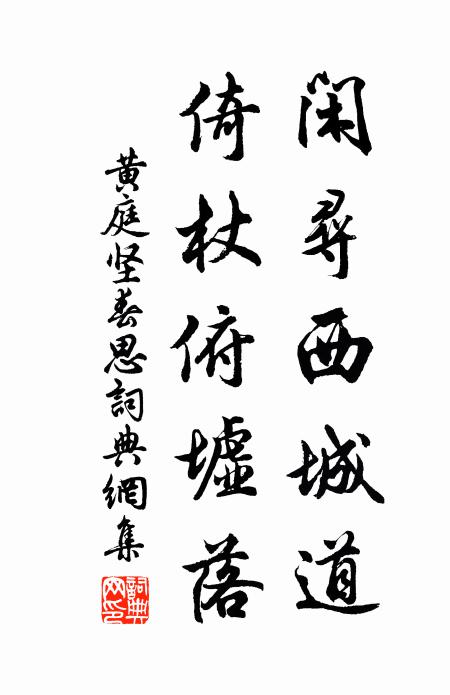 闲尋西城道
倚杖俯墟落
黄庭坚春思詞典網集
詞典
网印